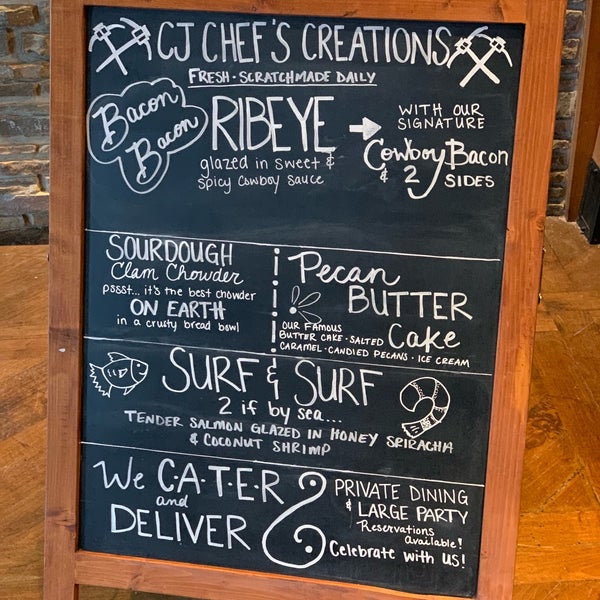 CJ CHEF'S CREATIONS
FRESH · SCRATCHMADE DAILY
Bacon
Bacon
RIBEYE
glazed in sweet &
spicy cowboy sauce
WITH OUR
SIGNATURE
Cowboy Bacon
& 2 SIDES
SOURDOUGH
Clam Chowder
pssst... it's the best chowder
ON EARTH
in a crusty bread bowl
Pecan
BUTTER
Cake
OUR FAMOUS
BUTTER CAKE · SALTED
CARAMEL · CANDIED PECANS · ICE CREAM
SURF & SURF
2 if by sea...
TENDER SALMON GLAZED IN HONEY SRIRACHA
& COCONUT SHRIMP
We C·A·T·E·R
and
DELIVER
&
PRIVATE DINING
& LARGE PARTY
Reservations
Available!
Celebrate with us!